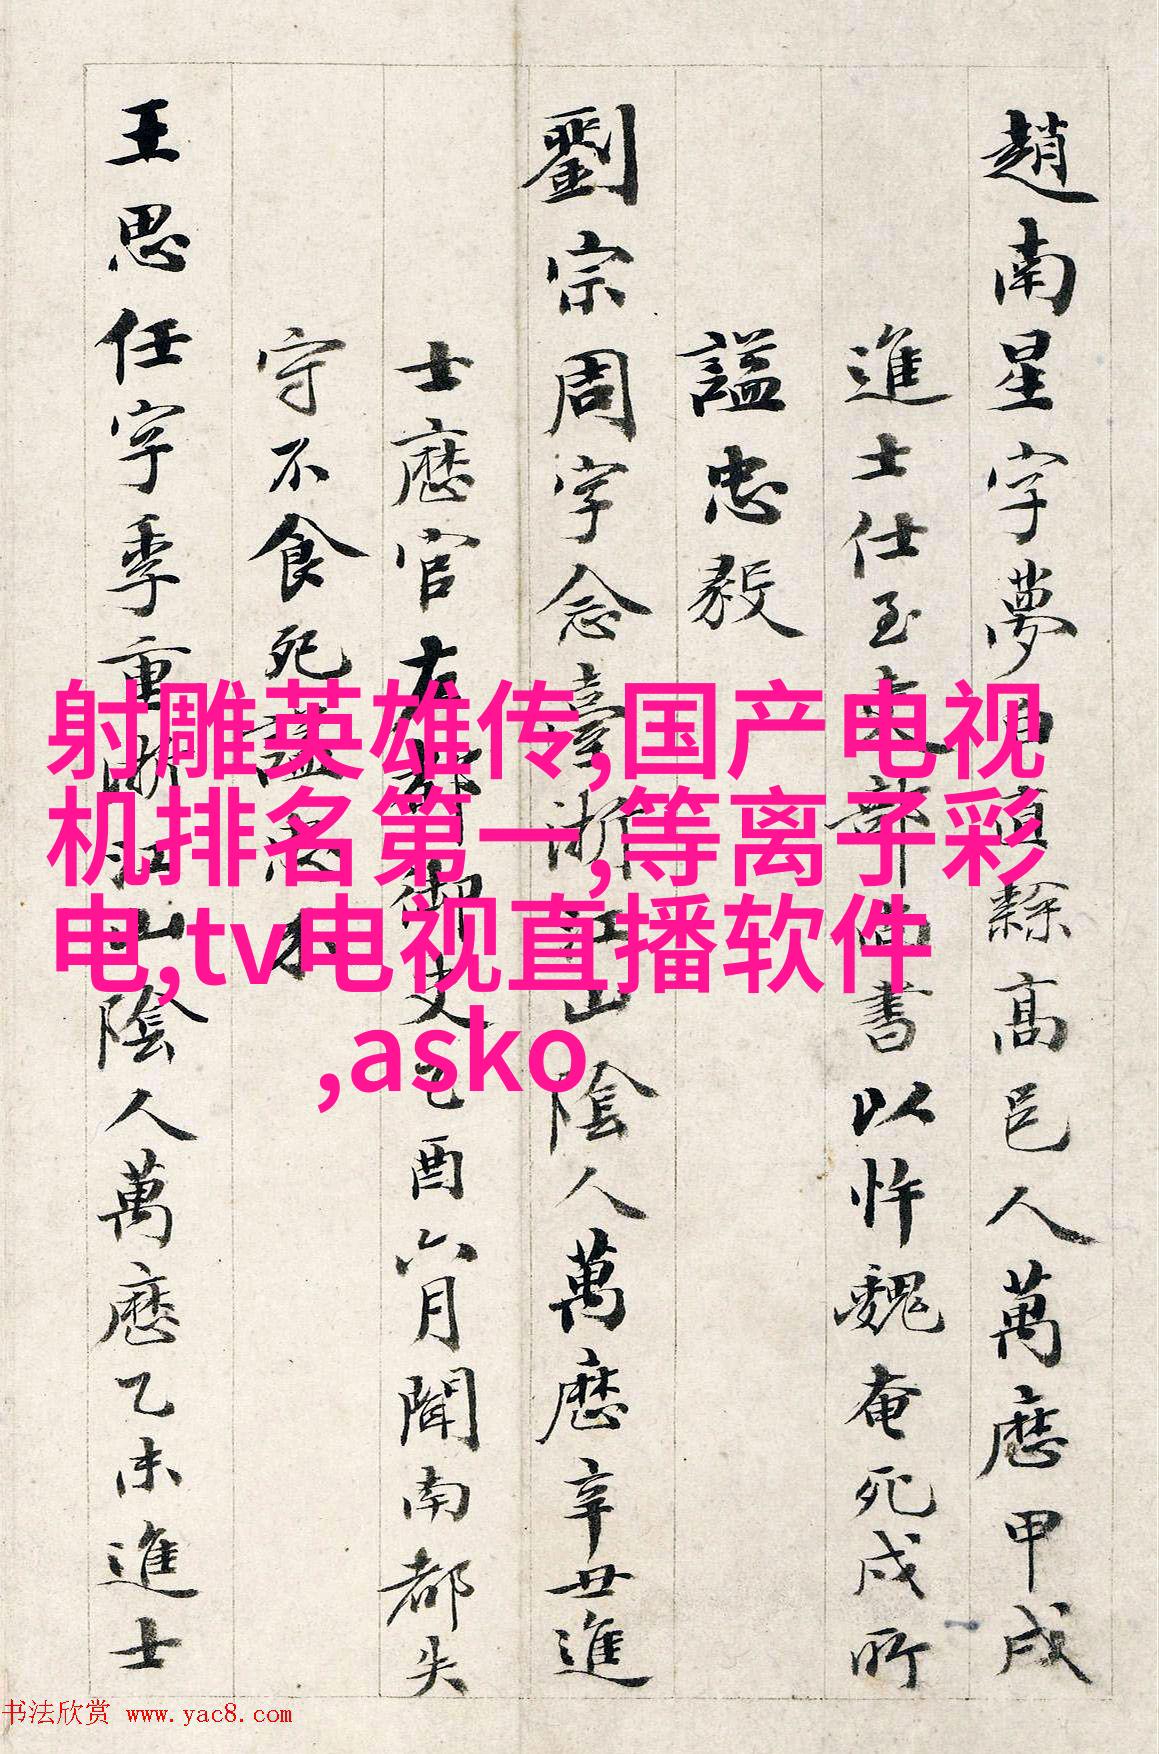 趙南星字夢白直隸高邑人萬曆甲戌
進士仕至吏部尚書以忤魏奄死戍所
諡忠毅
劉宗周字念臺浙江山陰人萬曆辛丑進
士曆官左都御史乙酉六月聞南都失
守不食死諡忠
王思任字季重浙江山陰人萬曆乙未進士
射雕英雄传,国产电视
机排名第一,等离子彩
电,tv电视直播软件
,asko
书法欣赏 www.yac8.com